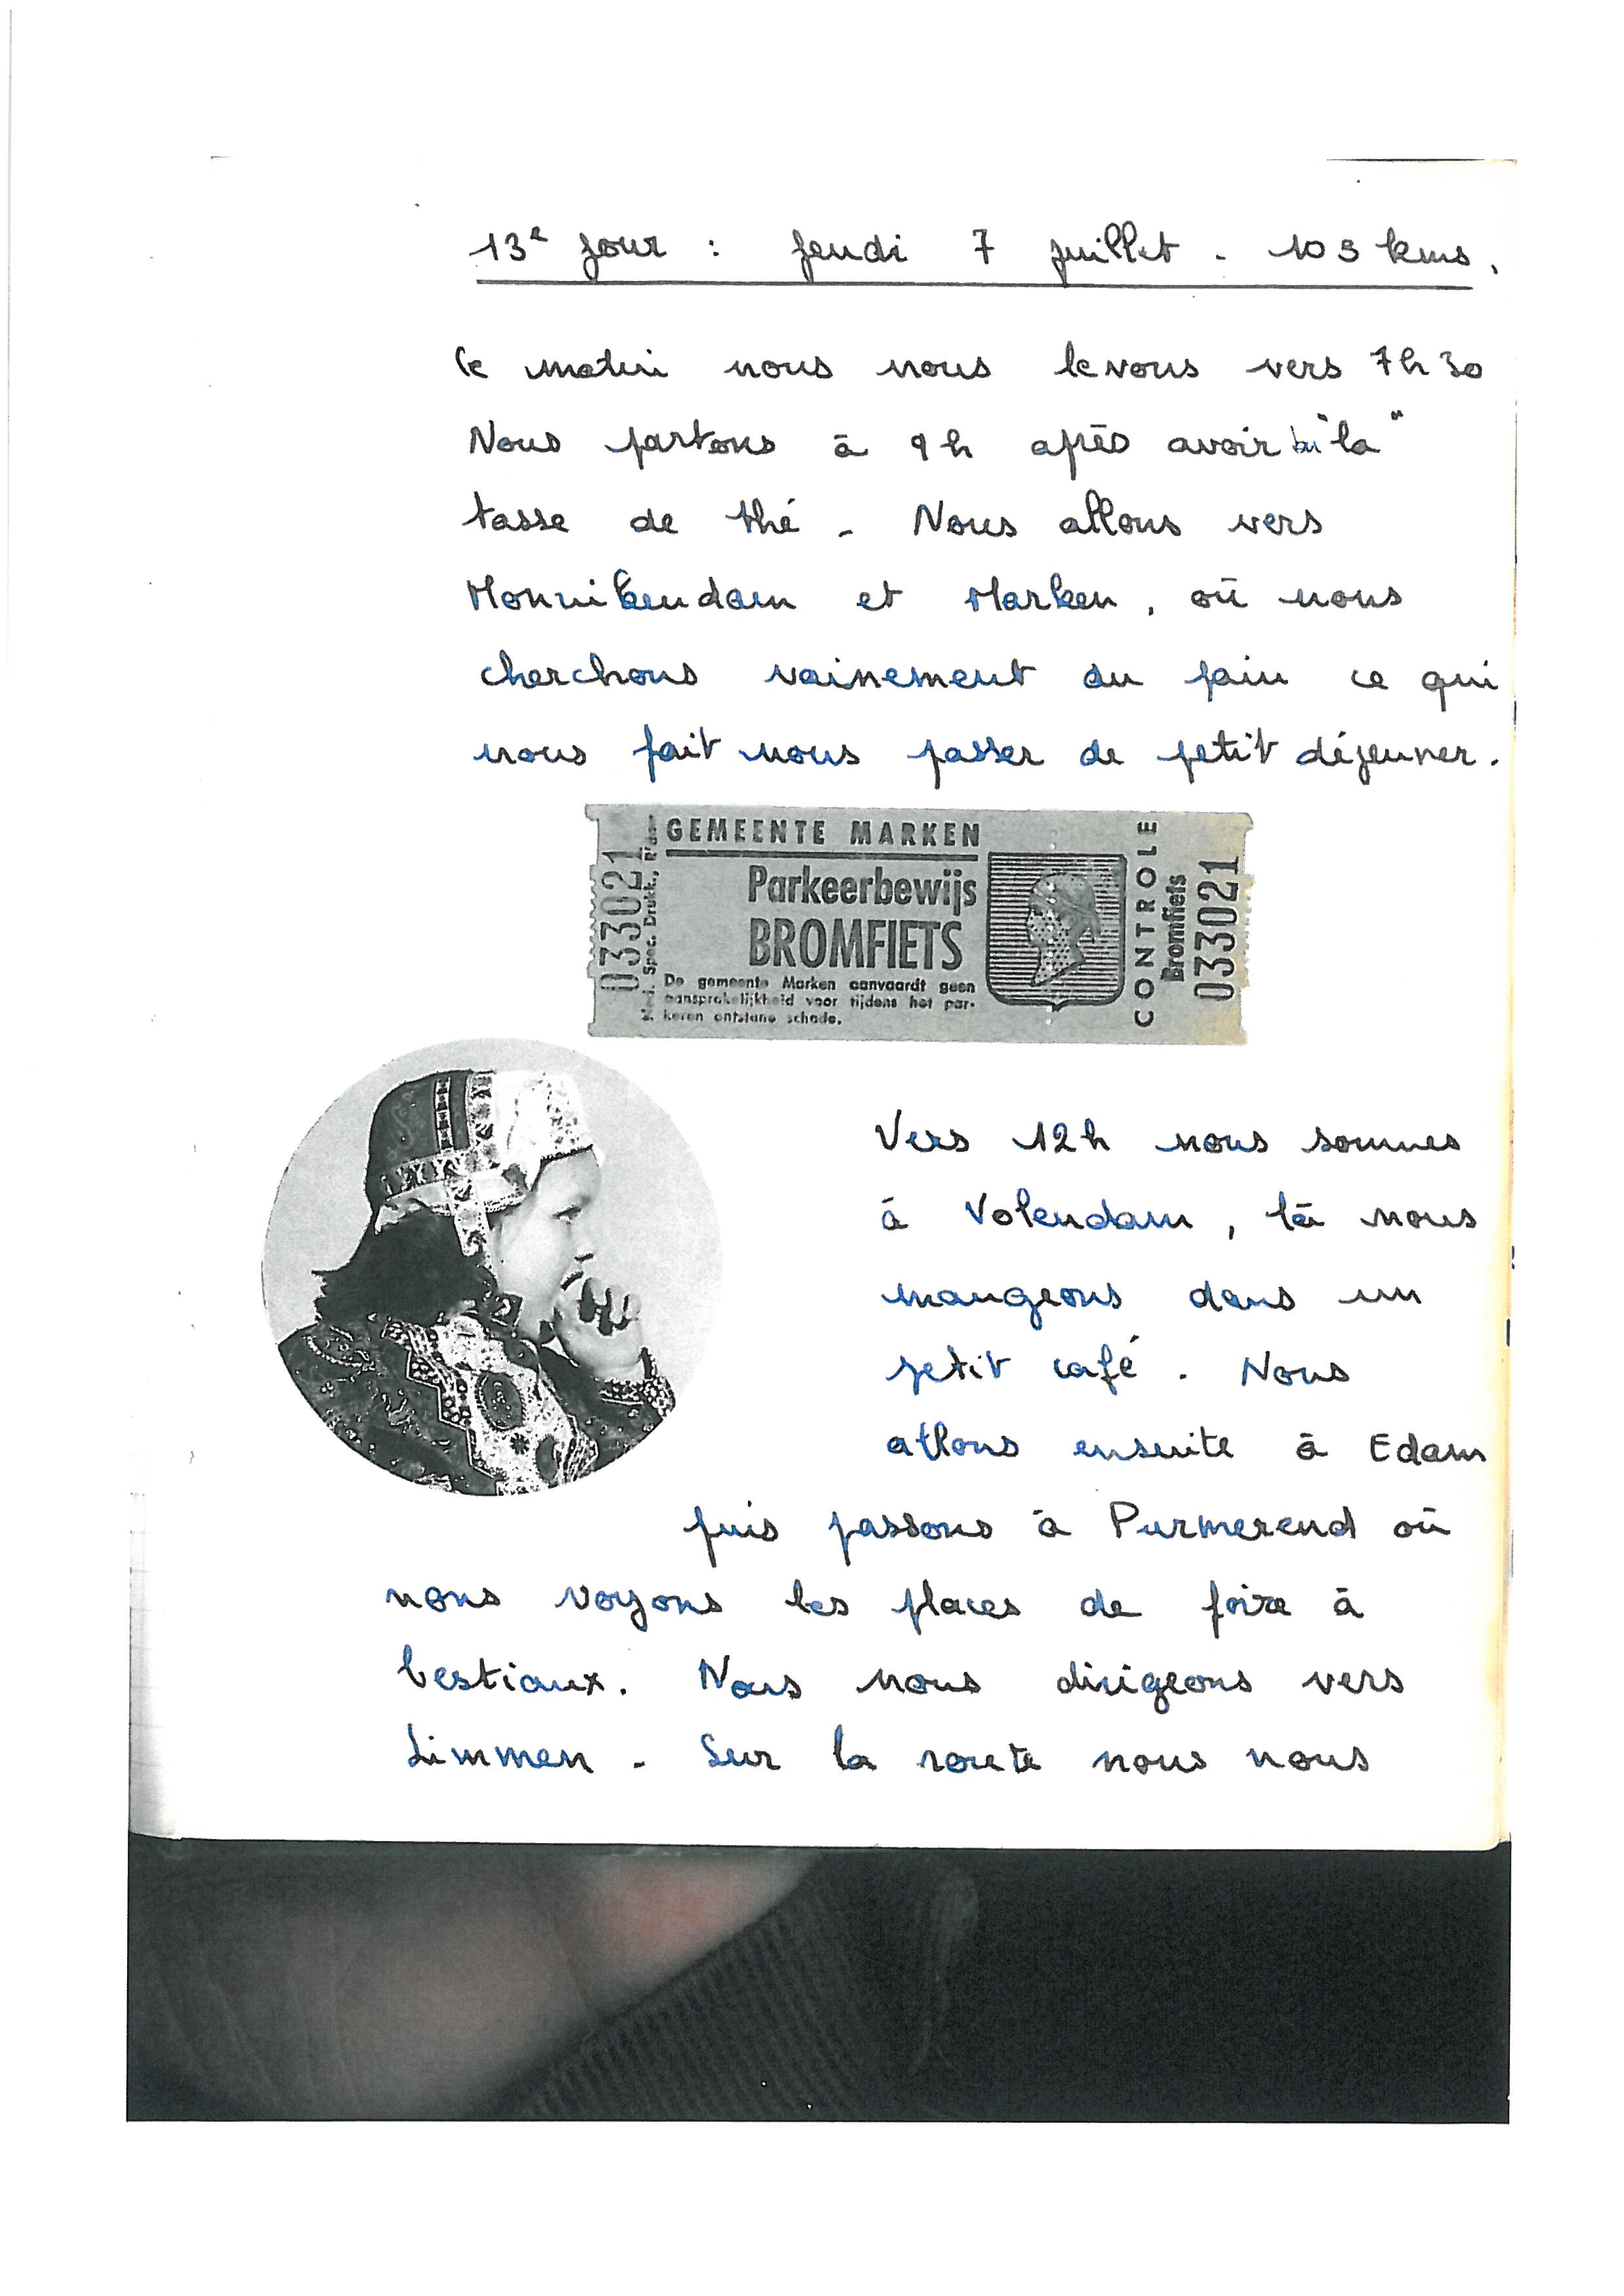 13e jour : jeudi 7 juillet - 105 kms.
Ce matin nous nous levons vers 7h30
Nous partons à 9h après avoir bu "la"
tasse de thé - Nous allons vers
Monnikendam et Marken, où nous
cherchons vainement du pain ce qui
nous fait nous passer de petit déjeuner.
GEMEENTE MARKEN
Parkeerbewijs
BROMFIETS
De gemeente Marken aanvaardt geen
aansprakelijkheid voor tijdens het par-
keren ontstane schade.
033021
Spec. Drukk.,
CONTROLE
Bromfiets
033021
Vers 12h nous sommes
à Volendam, là nous
mangeons dans un
petit café. Nous
allons ensuite à Edam
puis passons à Purmerend où
nous voyons les places de foire à
bestiaux. Nous nous dirigeons vers
Limmen - Sur la route nous nous